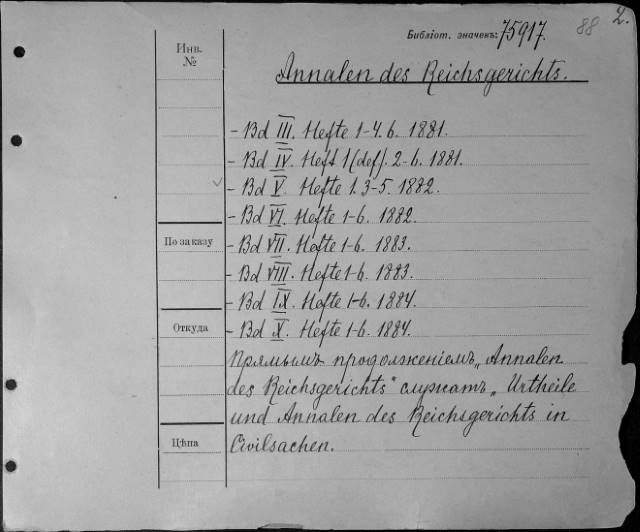 2.
88
Библіот. значекъ: 75917.
Инв.
№
Annalen des Reichsgerichts.
- Bd III. Hefte 1-4. 6. 1881.
- Bd IV. Heft 1 (def). 2-6. 1881.
- Bd V. Hefte 1. 3-5. 1882.
- Bd VI. Hefte 1-6. 1882.
По заказу
- Bd VII. Hefte 1-6. 1883.
- Bd VIII. Hefte 1-6. 1883.
- Bd IX. Hefte 1-6. 1884.
Откуда
- Bd X. Hefte 1-6. 1884.
Прямымъ продолженіемъ „Annalen
des Reichsgerichts" служатъ „Urtheile
und Annalen des Reichsgerichts in
Цѣна
Civilsachen.